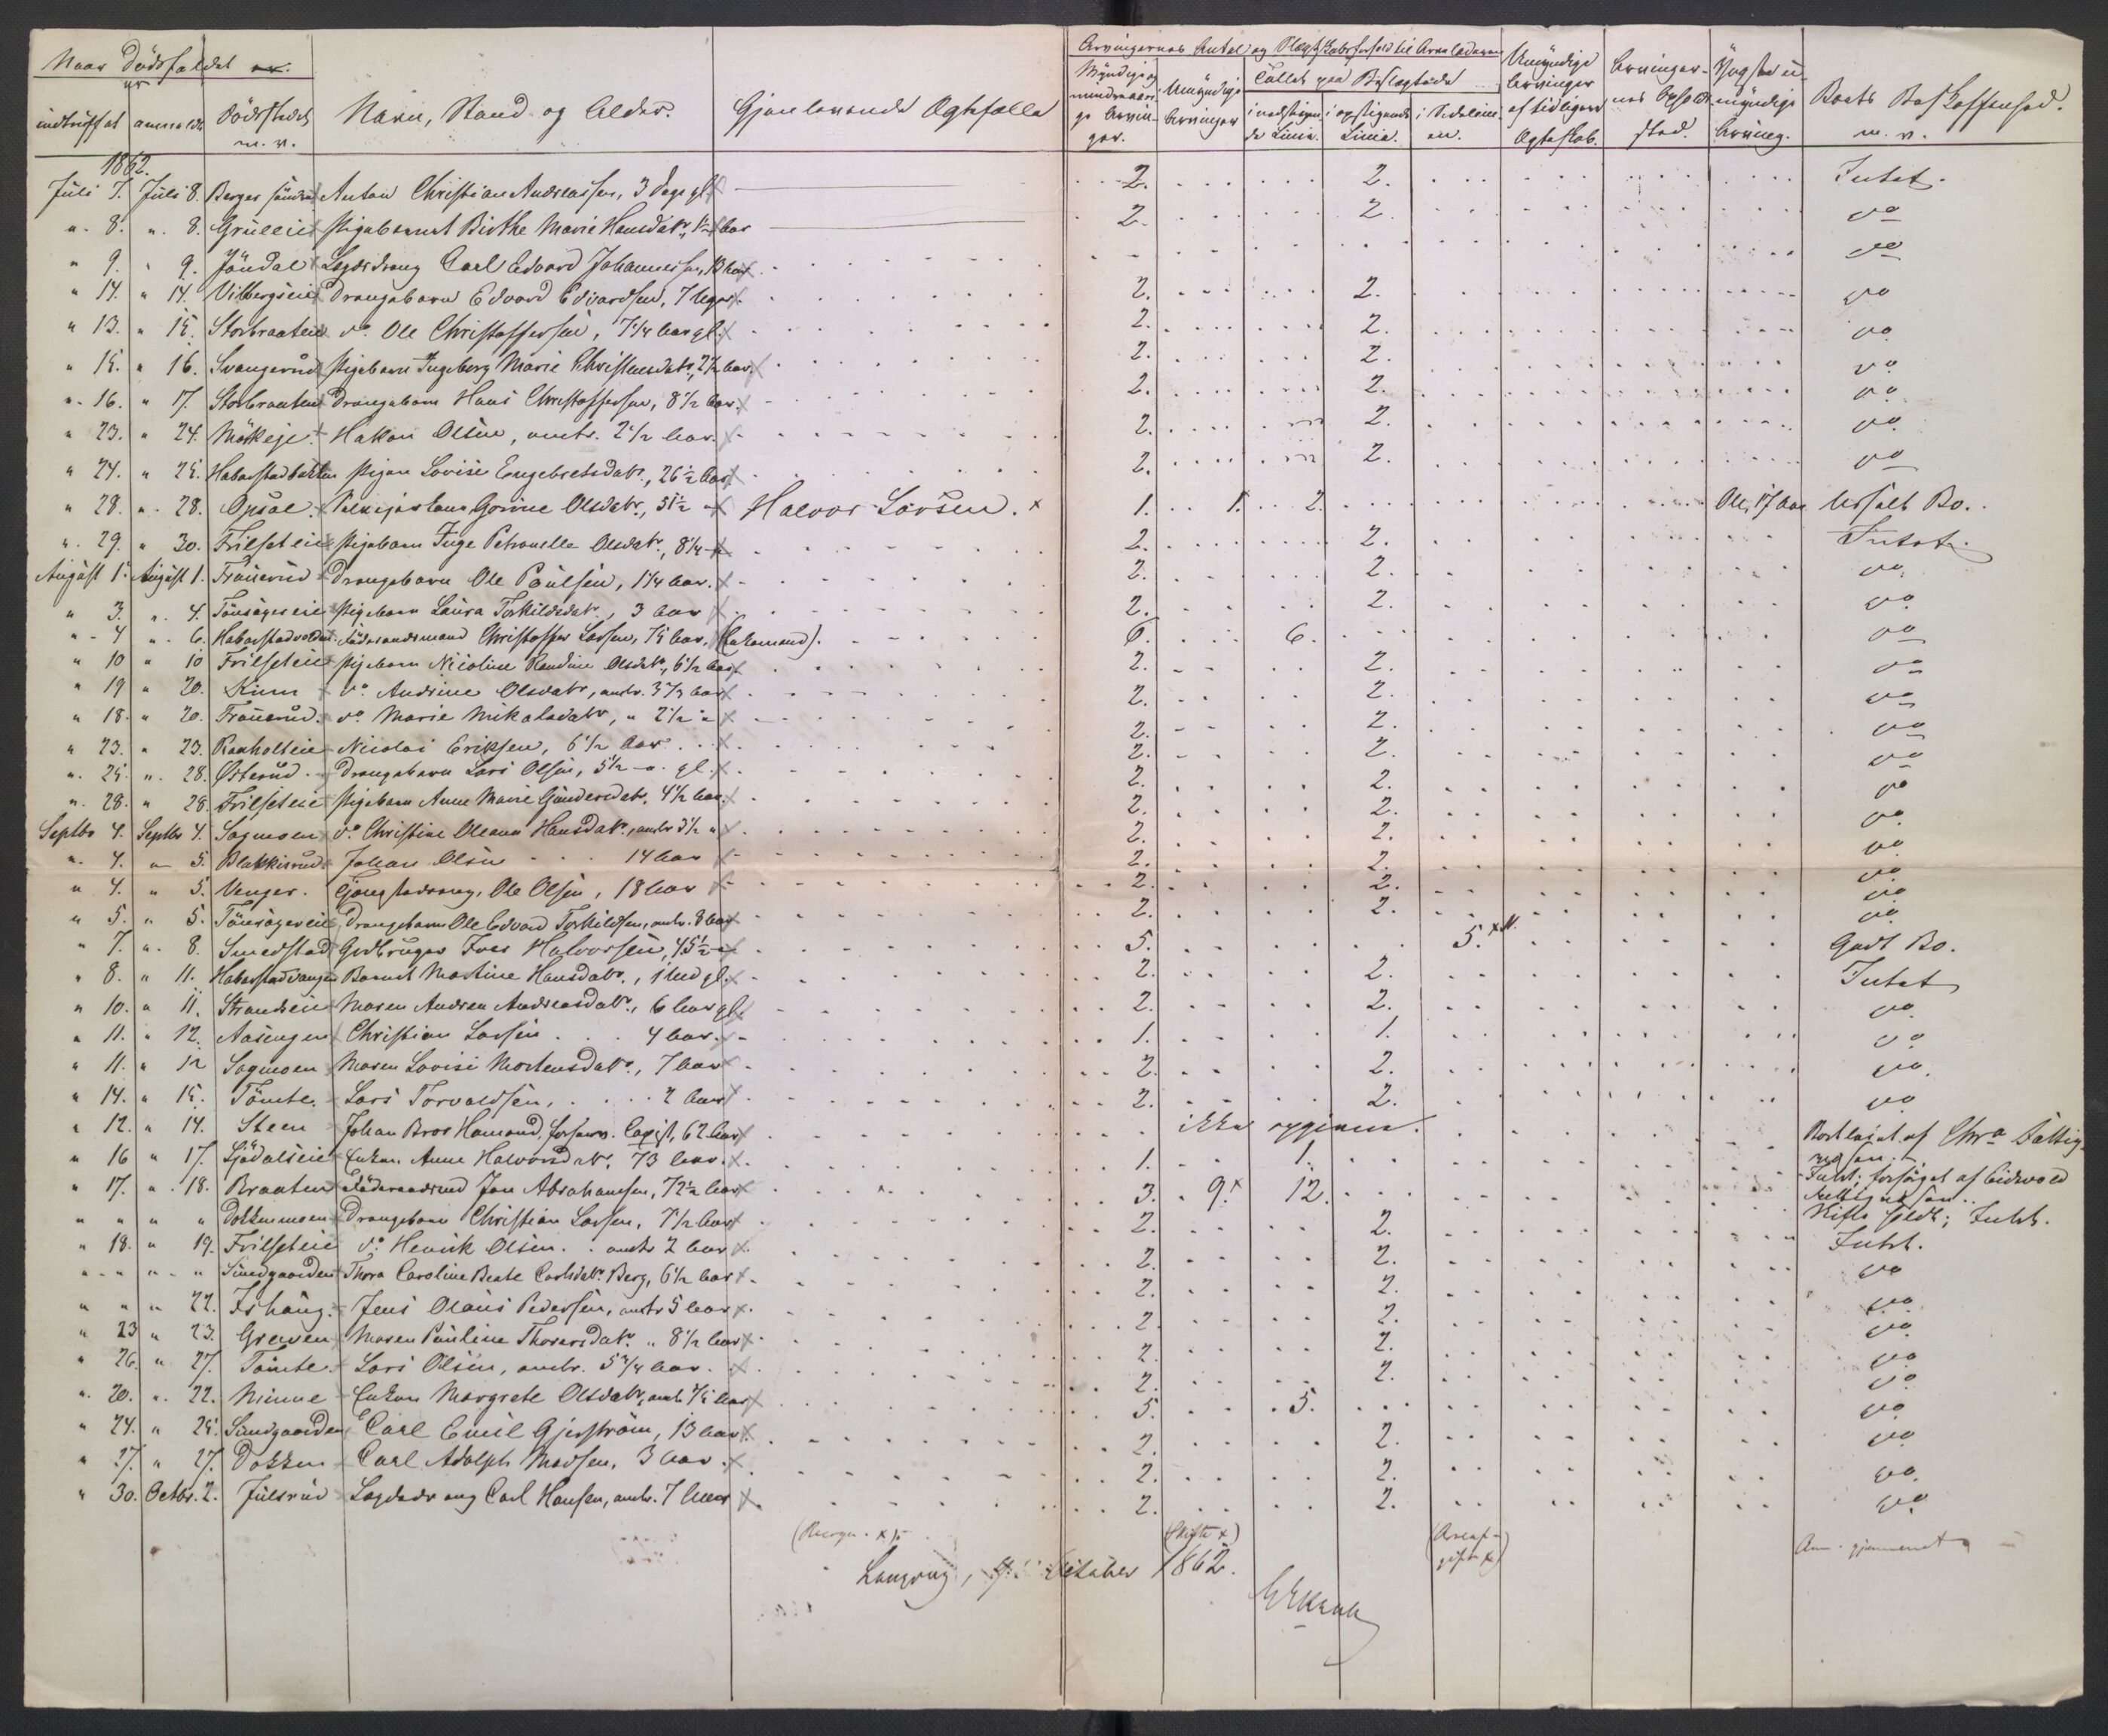 Naar Dödsfaldet er
Arvingernes Antal og Slægtskabsforhold til Arveladeren
indtruffet anmeldt Dödsstedet m. v. Navn, Stand og Alder. Gjenlevende Ægtefælle
Myndige og mindreaarige Arvinger. Umyndige Arvinger Tallet paa Beslægtede i nedstigende Linie. i opstigende Linie. i Sidelinien. Umyndige Arvinger af tidligere Ægteskab. Arvingernes Opholdssted. Yngste umyndige Arving. Boets Beskaffenhed. m. v.
1862.
Juli 7. Juli 8. Berger söndre Anton Christian Andreassen, 3 Dage gl. 2. 2. Intet.
" 8. " 8. Grüeeie Pigebarnet Birthe Marie Hansdatr, 1½ Aar 2. 2. do
" 9. " 9. Jöndal Lægdsdreng Carl Edvard Johannessen, 13 Aar do
" 14. " 14. Vilbergseie Drengebarn Edvard Edvardsen, 7 Uger. 2. 2. do
" 13. " 15. Storbraaten do. Ole Christoffersen, 7¼ Aar gl. 2. 2. do
" 15. " 16. Svangerud Pigebarn Ingeborg Marie Christensdatr, 2½ Aar. 2. 2. do
" 16. " 17. Storbraaten Drengebarn Hans Christoffersen, 8½ Aar. 2. 2. do
" 23. " 24. Mörkeje Hakon Olsen, omtr. 2½ Aar. 2. 2. do
" 24. " 25. Habberstadbakken Pigen Lovise Engebretsdatr, 26½ Aar 2. 2. do
" 28. " 28. Opsal. Gorine Olsdatr, 51½ " Halvor Larsen. x 1. 1. 2. Ole, 17 Aar Usselt Bo.
" 29. " 30. Frilseteie Pigebarn Inge Petronelle Olsdatr, 8¼ " 2. 2. Intet.
August 1. August 1. Trauerud Drengebarn Ole Paulsen, 1¼ Aar. 2. 2. do
" 3. " 4. Tönsagereie Pigebarn Laura Torkildsdatr, 3 Aar 2. 2. do
" 4 " 6. Habberstadvolden Föderaadsmand Christoffer Larsen, 75 Aar, (Enkemand). 6. 6. do
" 10 " 10 Frilseteie Pigebarn Nicoline Randine Olsdatr, 6½ Aar 2. 2. do
" 19 " 20. Rum do Andrine Olsdatr, omtr. 3⅓ Aar 2. 2. do
" 18. " 20. Trauerud do Marie Mikalsdatr, " 2½ " 2. 2. do
" 23. " 23. Raaholteie Nicolai Eriksen, 6½ Aar 2. 2. do
" 25. " 28. Østerud. Drengebarn Lars Olsen, 5½ " gl. 2. 2. do
" 28. " 28. Frilseteie Pigebarn Anne Marie Gundersdatr, 4½ Aar. 2. 2. do
Septbr 4. Septbr 4. Sagmoen do Christine Oleane Hansdatr, omtr 3½ " 2. 2. do
" 4. " 5. Blakkisrud Johan Olsen 14 Aar 2. 2. do
" 4. " 5. Venger. Tjenestedreng, Ole Olsen, 18 Aar 2. 2. do
" 5. " 5. Tönsagereie Drengebarn Ole Edvard Torkildsen, omtr. 8 Aar 2. 2. do
" 7. " 8. Smedstad Gdbruger Iver Halvorsen, 45½ " 5. 5. x Godt Bo.
" 8. " 11. Habberstadvangen Barnet Martine Hansdatr, 1 Md gl. 2. 2. Intet
" 10. " 11. Strandeie Maren Andrea Andreasdatr, 6 Aar gl. 2. 2. do
" 11. " 12. Aasengen Christian Larsen 4 Aar. 1. 1. do
" 11. " 12 Sagmoen Maren Lovise Mortensdatr, 7 Aar 2. 2. do
" 14. " 15. Tömte. Lars Torvaldsen, 2 Aar 2. 2. do
" 12. " 14. Steen Johan Bror Hamond, forhenv. Copist, 62 Aar ikke opgivne. Bortleiet af Chra Fattigvæsen.
" 16 " 17. Ljödalseie Enken Anne Halvorsdatr, 73 Aar. 1. 1. Intet; forsörget af Eidsvold Fattigvæsen.
" 17. " 18. Braaten Föderaadsmd Jon Abrahamsen, 72½ Aar 3. 9. x 12. Skifte holdt; Intet.
" " " " Dokkenmoen Drengebarn Christian Larsen, 7½ Aar 2. 2. Intet.
" 18. " 19. Frilseteie do. Henrik Olsen. omtr 2 Aar 2. 2. do
" " " " Sundgaarden Thora Caroline Beate Carlsdatr. Berg, 6½ Aar 2. 2. do
" " " 22. Ishaug. Jens Olaus Pedersen, omtr 5 Aar 2. 2. do
" 23 " 23. Greven Maren Pauline Thorersdatr. " 8½ Aar 2. 2. do
" 26. " 27. Tömte. Lars Olsen, omtr. 5¾ Aar. 2. 2. do
" 20. " 22. Minne Enken Margrete Olsdatr, omtr. 75 Aar 5. 5. do
" 24. " 25. Sundgaarden Carl Emil Gjerström, 13 Aar. 2. 2. do
" 27. " 27. Dokken Carl Adolph Madsen, 3 Aar. 2. 2. do
" 30. Octbr. 2. Julsrud Lægdsdreng Carl Hansen, omtr. 7 Aar 2. 2. do
(Skifte x)
October 1862.